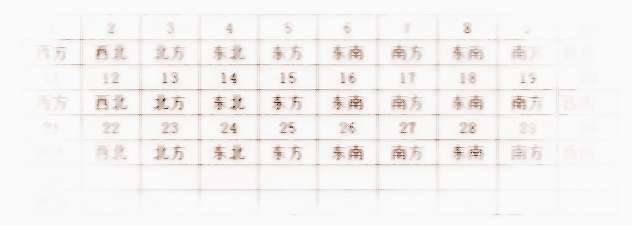 2 3 4 5 6 7 8
西方 西北 北方 东北 东方 东南 南方 东南 南方
12 13 14 15 16 17 18 19
西方 西北 北方 东北 东方 东南 南方 东南 南方
21 22 23 24 25 26 27 28 29
西北 北方 东北 东方 东南 南方 东南 南方